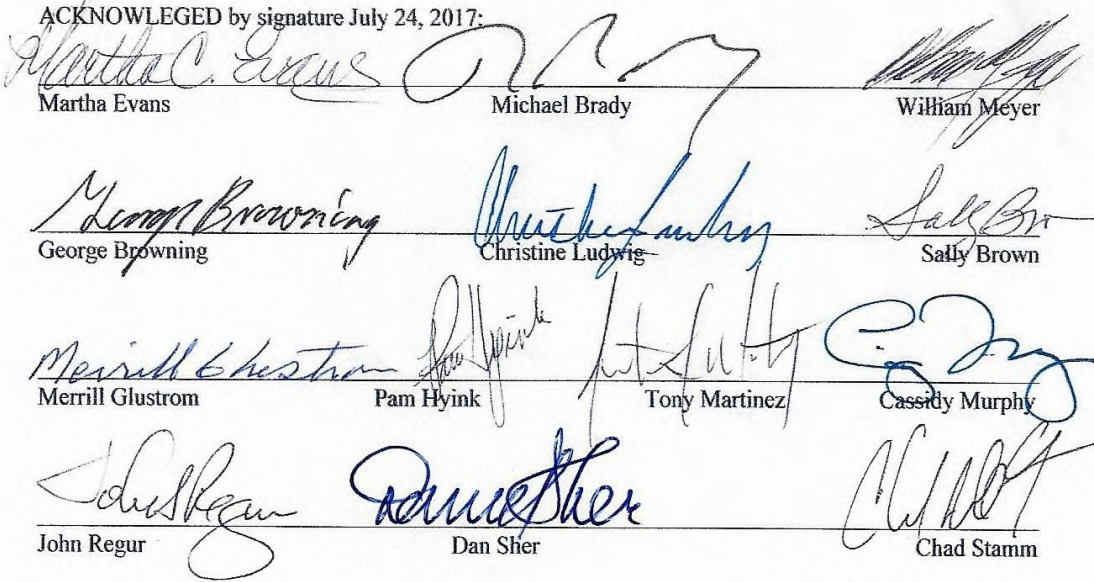 ACKNOWLEGED by signature July 24, 2017:
Martha C. Evans
Martha Evans Michael Brady William Meyer
George Browning
George Browning Christine Ludwig Sally Brown
Merrill Glustrom Pam Hyink
Merrill Glustrom Pam Hyink Tony Martinez Cassidy Murphy
Dan Sher
John Regur Dan Sher Chad Stamm